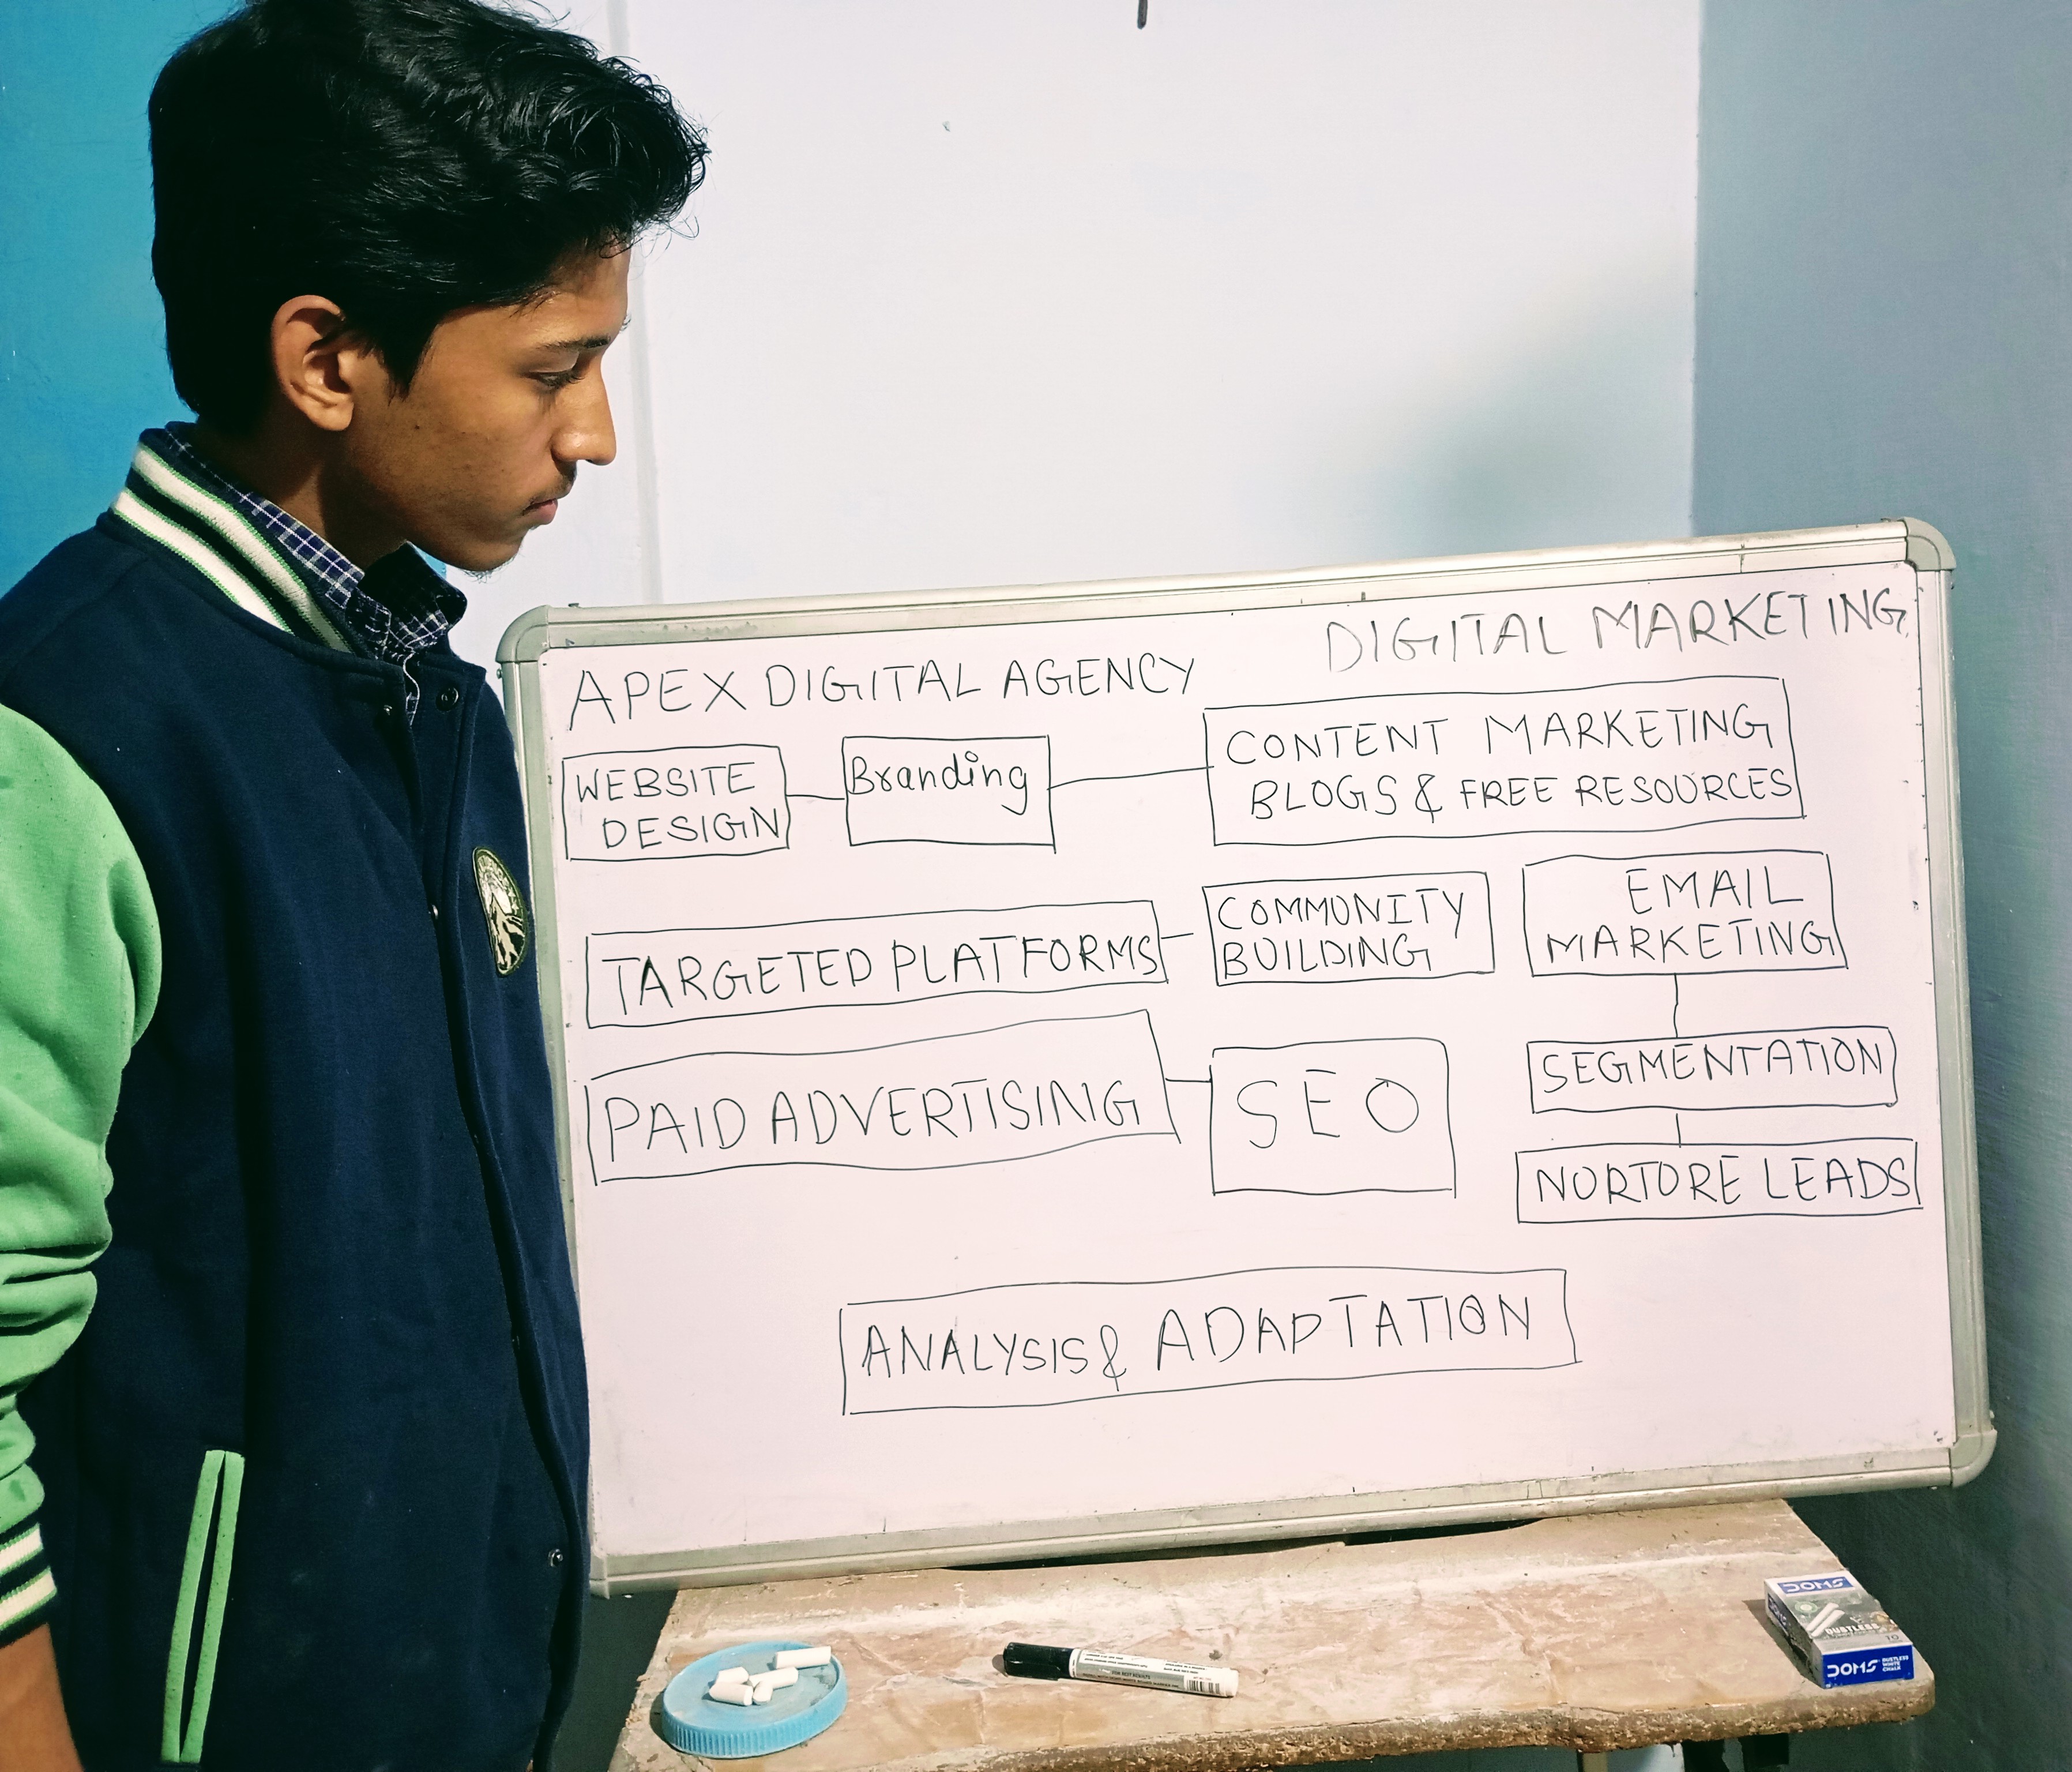 APEX DIGITAL AGENCY
DIGITAL MARKETING
WEBSITE
DESIGN
Branding
CONTENT MARKETING
BLOGS & FREE RESOURCES
TARGETED PLATFORMS
COMMUNITY
BUILDING
EMAIL
MARKETING
PAID ADVERTISING
SEO
SEGMENTATION
NORTORE LEADS
ANALYSIS & ADAPTATION
DOMS
DUSTLESS
DOMS
DUSTLESS
WHITE
CHALK